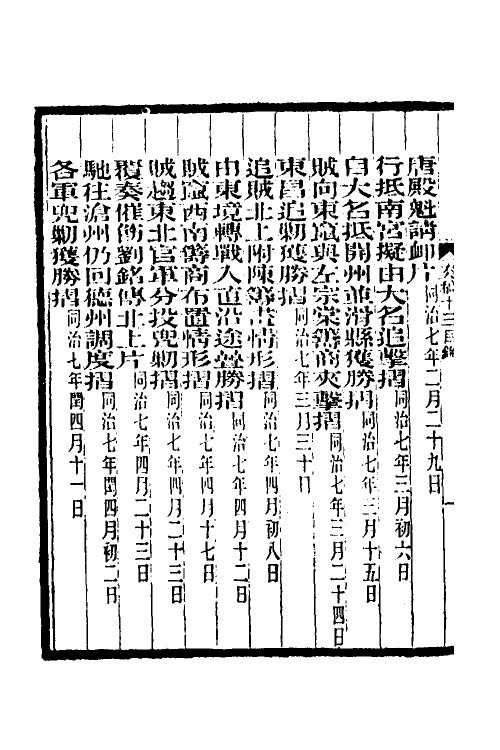 唐殿魁請卹片同治七年二月二十九日
行抵南宮擬由大名追擊摺同治七年三月初六日
自大名抵開州並滑縣獲勝摺同治七年三月十五日
賊向東竄與左宗棠籌商夾擊摺同治七年三月二十四日
東昌追勦獲勝摺同治七年三月三十日
追賊北上附陳籌畫情形摺同治七年四月初八日
由東境轉戰入直沿途疊勝摺同治七年四月十二日
賊竄西南籌商布置情形摺同治七年四月十七日
賊趨東北官軍分投兜勦摺同治七年四月二十三日
覆奏催銜劉銘傳北上片同治七年四月二十三日
馳往滄州仍回德州調度摺同治七年閏四月初二日
各軍兜勦獲勝摺同治七年閏四月十一日
奏稿十三目錄
一